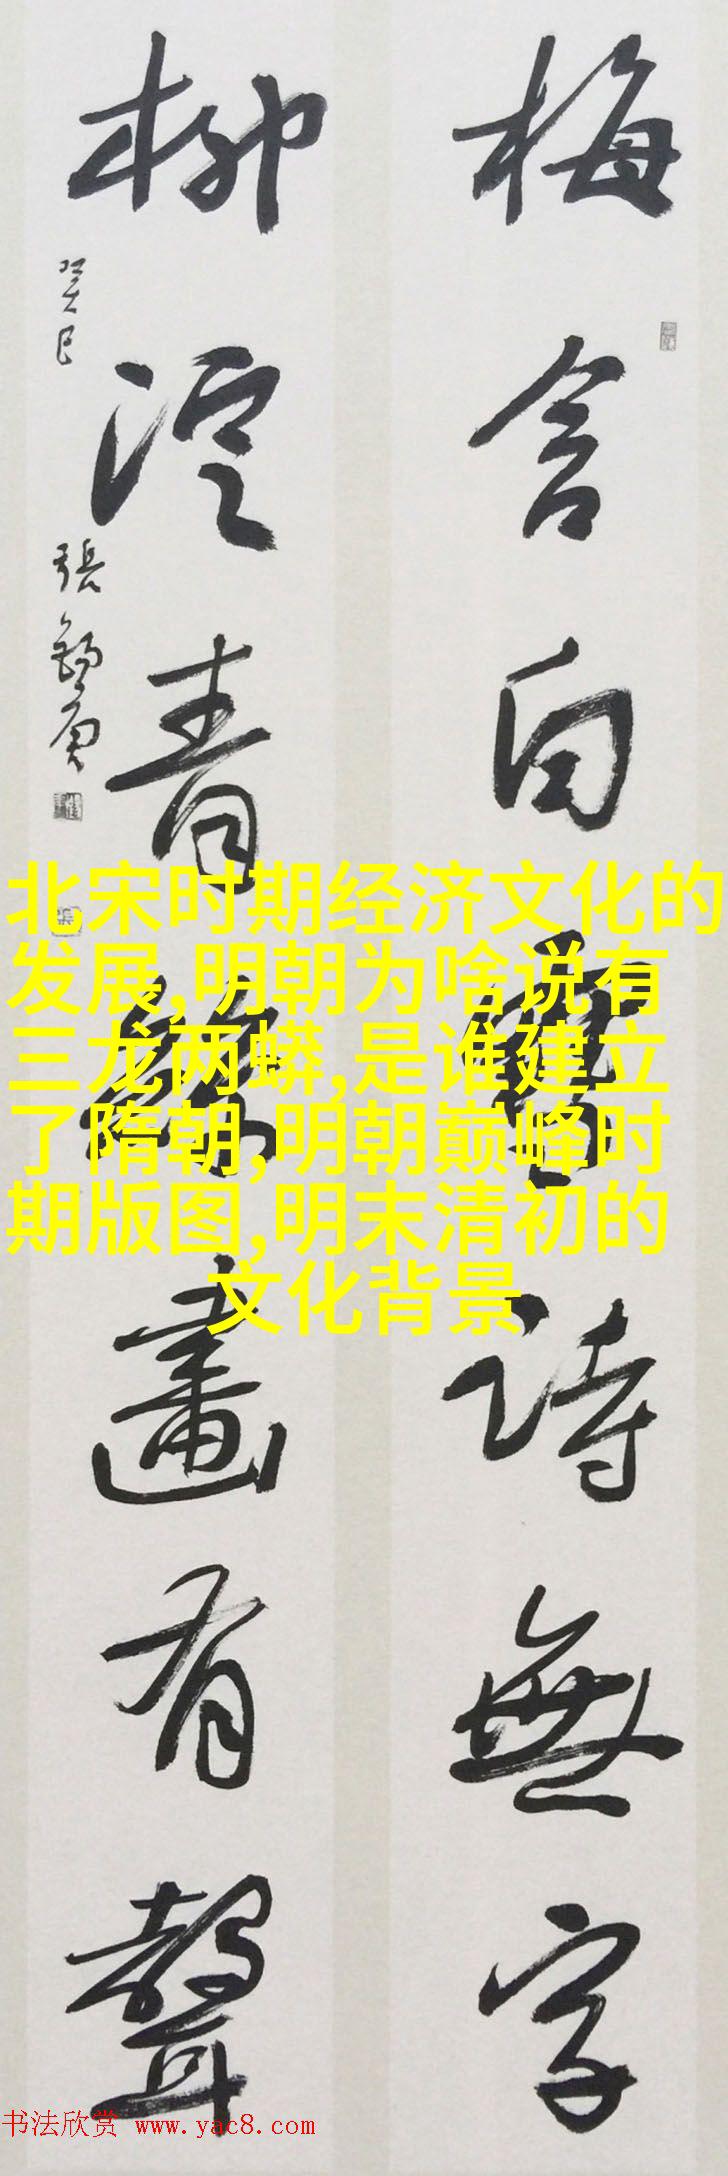 梅含白雪詩無字
柳淀青絲畫有聲
癸巳
張錦
北宋时期经济文化的
发展,明朝为啥说有
三龙两蟒,是谁建立
了隋朝,明朝巅峰时
期版图,明末清初的
文化背景
书法欣赏 www.yac8.com